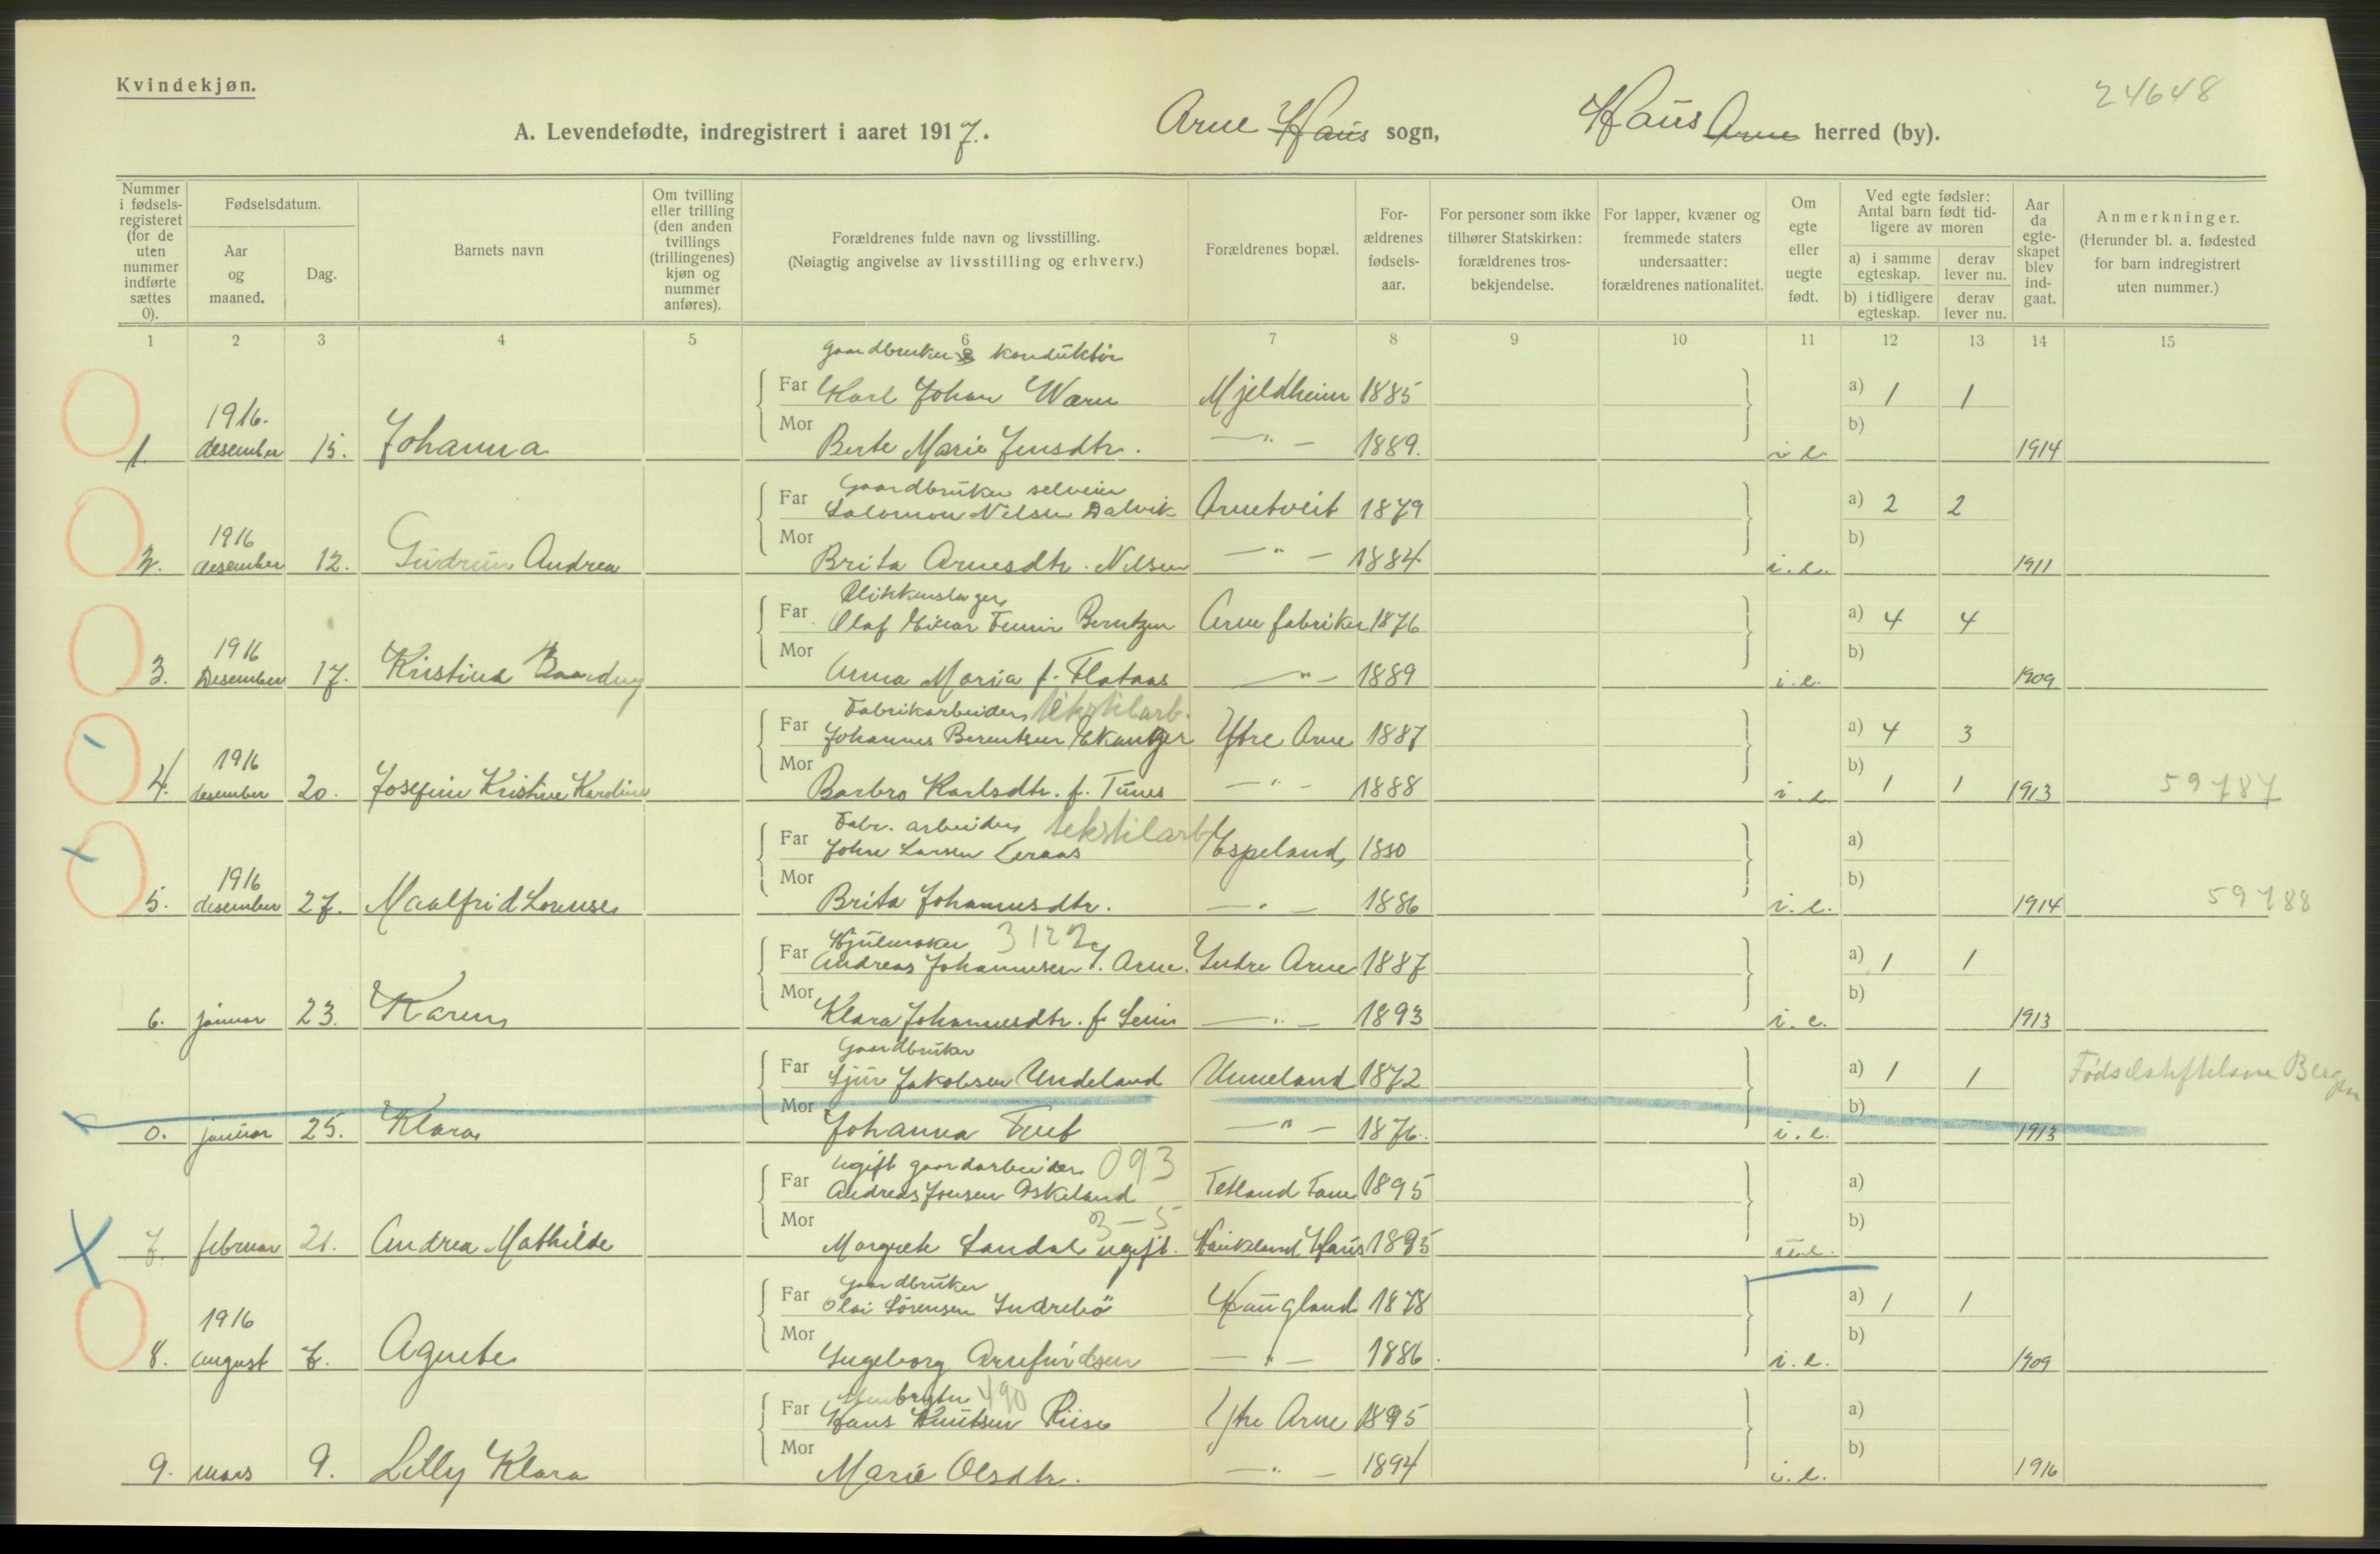 Kvindekjøn.
24648
A. Levendefødte, indregistrert i aaret 1917. Arne Haus sogn, Haus Arne herred (by).
Nummer i fødsels-registeret (for de uten nummer indførte sættes 0).
Fødselsdatum.
Aar og maaned.
Dag.
Barnets navn
Om tvilling eller trilling (den anden tvillings (trillingenes) kjøn og nummer anføres).
Forældrenes fulde navn og livsstilling. (Nøiagtig angivelse av livsstilling og erhverv.)
Forældrenes bopæl.
For-ældrenes fødsels-aar.
For personer som ikke tilhører Statskirken: forældrenes tros-bekjendelse.
For lapper, kvæner og fremmede staters undersaatter: forældrenes nationalitet.
Om egte eller uegte født.
Ved egte fødsler: Antal barn født tid-ligere av moren
a) i samme egteskap. derav lever nu.
b) i tidligere egteskap. derav lever nu.
Aar da egte-skapet blev ind-gaat.
Anmerkninger. (Herunder bl. a. fødested for barn indregistrert uten nummer.)
1 2 3 4 5 6 7 8 9 10 11 12 13 14 15
gaardbruker & konduktör
Far Karl Johan Warn Mjeldheim 1885 a) 1 1
1916.
Mor b)
1. desember 15. Johanna Berte Marie Jensdtr. —"— 1889. i e. 1914
Gaardbruker selveier
Far Salomon Nilsen Dalvik Arnetveit 1879 a) 2 2
1916
Mor b)
2. desember 12. Gudrun Andrea Brita Arnesdtr. Nilsen —"— 1884 i.e. 1911
Blikkenslager
Far Olaf Einar Berntzen Arne fabriker 1876 a) 4 4
1916
Mor b)
3. Desember 17. Kristine Anna Maria f. Flataas —"— 1889 i.e. 1909
Fabrikarbeider tekstilarb.
Far Johannes Berentsen Ytre Arne 1887 a) 4 3
1916
Mor b)
4. desember 20. Josefine Kristine Karoline Barbro Karlsdtr. f. Tunes —"— 1888 i.e. 1 1 1913 59787
Fabr. arbeider tekstilarb
Far Johan Larsen Leraas Espeland 1880 a)
1916
Mor b)
5. desember 27. Maalfrid Lorense Brita Johannesdtr. —"— 1886 i.e. 1914 59788
Hjulmaker 3122
Far Andreas Johannesen I. Arne. Indre Arne 1887 a) 1 1
Mor b)
6. januar 23. Karen Klara Johannesdtr. f. Seim —"— 1893 i.e. 1913
Gaardbruker
Far Sjur Jakobsen Undeland Unneland 1872 a) 1 1 Fødselsstiftelsen Bergen
Mor b)
0. januar 25. Klara Johanna —"— 1876. i.e. 1913
Ugift gaardarbeider 093
Far Andreas Jonsen Askeland Tetland Fane 1895 a)
Mor 3-5 b)
7. februar 21. Andrea Mathilde Margrete Sandal ugift. Haukeland Haus 1895 u.e.
Gaardbruker
Far Olai Sörensen Indrebö Haugland 1878 a) 1 1
1916
Mor b)
8. august 7. Agnete Ingeborg —"— 1886. i.e. 1909
490
Far Hans Knutsen Riise Ytre Arne 1895 a)
Mor b)
9. mars 9. Lilly Klara Marie Olsdtr. —"— 1894 i.e. 1916